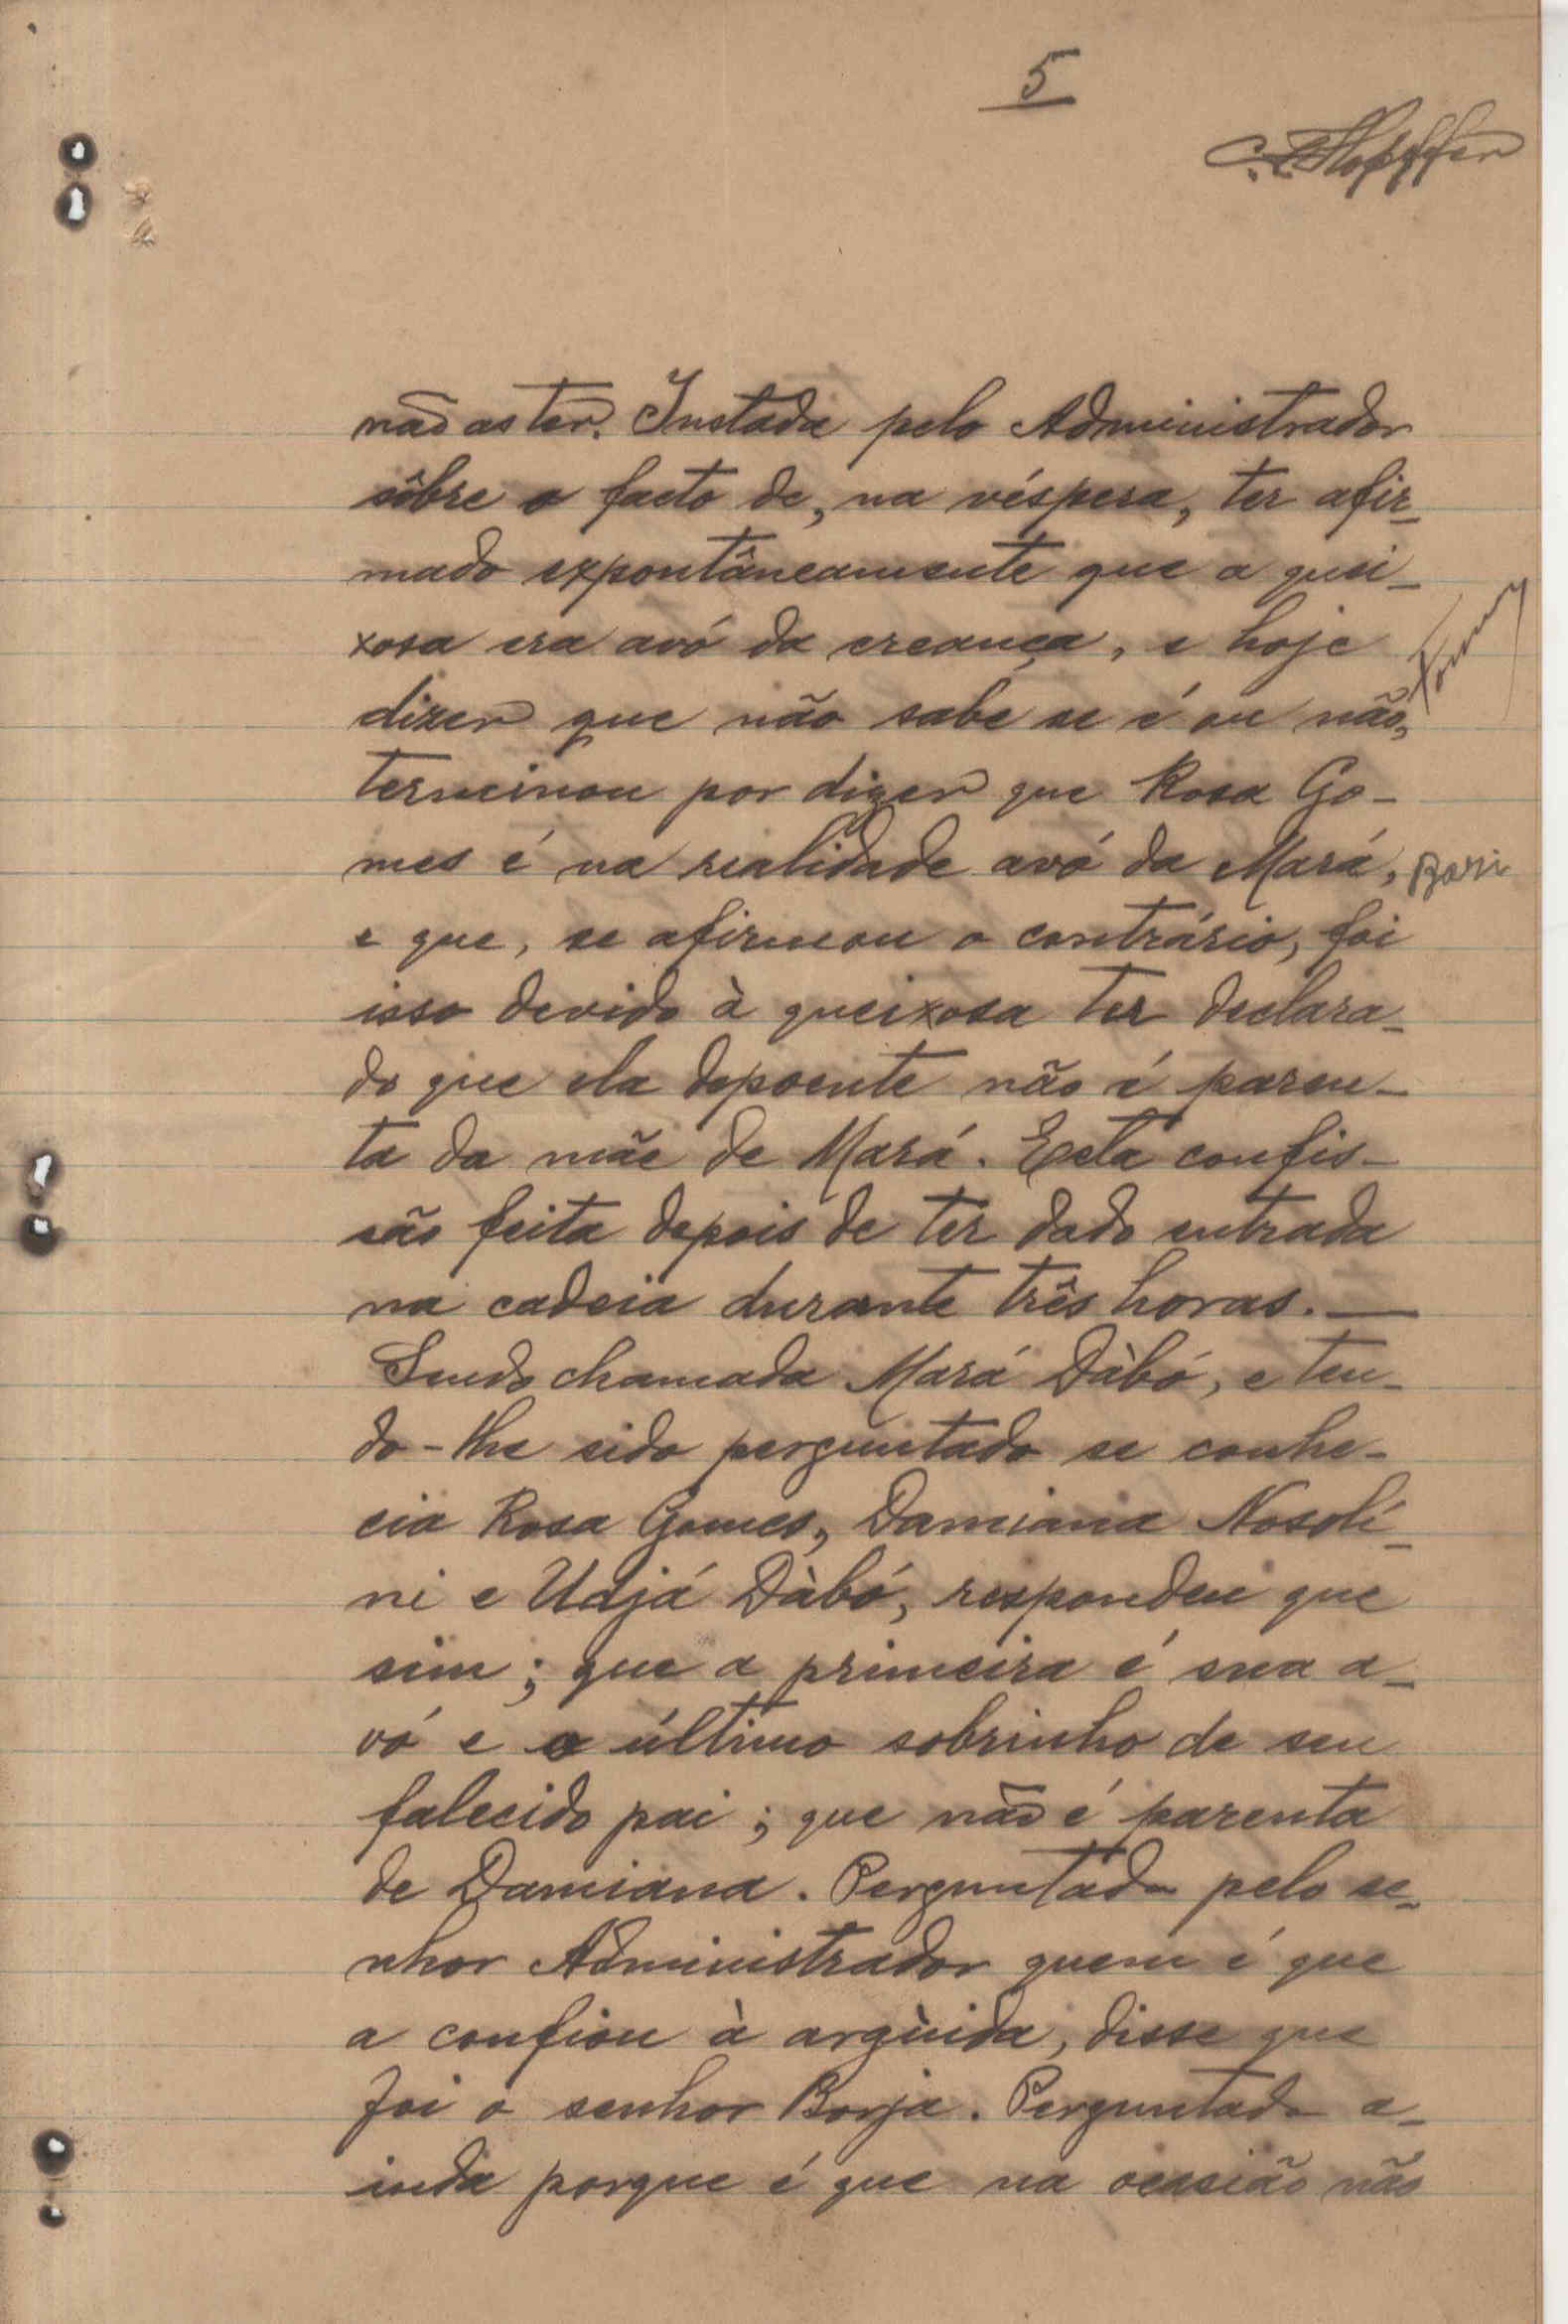 5
não as ter. Instada pelo Administrador
sôbre o facto de, na véspera, ter afir-
mado expontâneamente que a quei-
xosa era avó da creança, e hoje
dizer que não sabe se é ou não,
terminou por dizer que Rosa Go-
mes é na realidade avó da Mará,
e que, se afirmou o contrário, foi
isso devido à queixosa ter declara-
do que ela depoente não é paren-
ta da mãe de Mará. Esta confis-
são feita depois de ter dado entrada
na cadeia durante três horas.—
Sendo chamada Mará Dàbó, e ten-
do-lhe sido perguntado se conhe-
cia Rosa Gomes, Damiana Nosolí-
ni e Udjá Dàbó, respondeu que
sim; que a primeira é sua a-
vó e o último sobrinho de seu
falecido pai; que não é parenta
de Damiana. Perguntada pelo se-
nhor Administrador quem é que
a confiou à argùida, disse que
foi o senhor Borja. Perguntada a-
inda porque é que na ocasião não